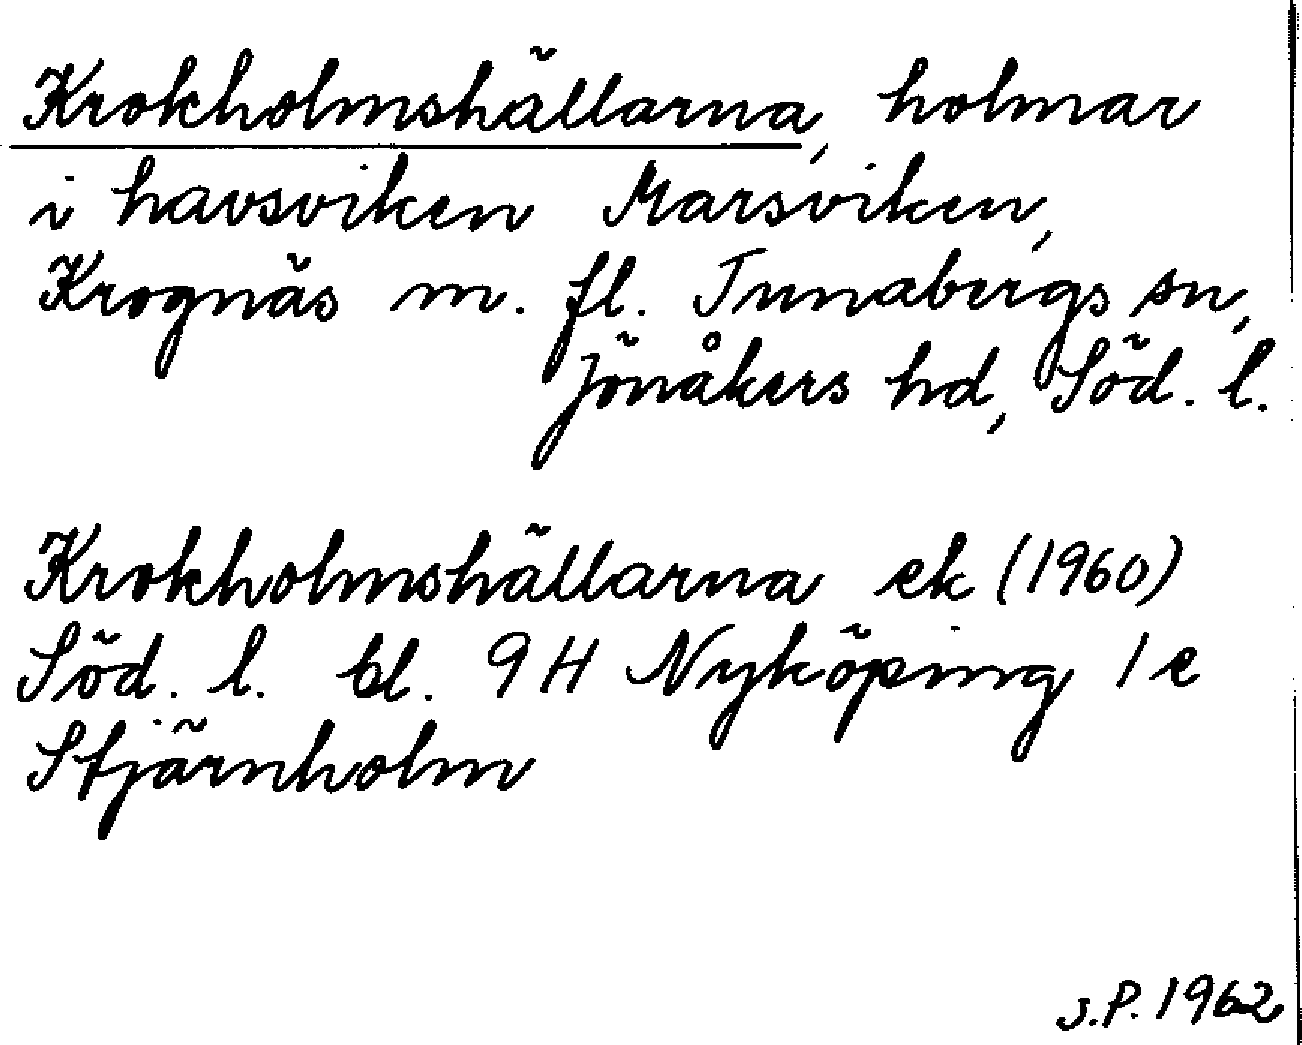 Krokholmshällarna, holmar
i havsviken Marsviken,
Krognäs m. fl. Tunabergs sn,
Jönåkers hd, Söd. l.
Krokholmshällarna ek (1960)
Söd. l. bl. 9H Nyköping 1e
Stjärnholm
J.P. 1962